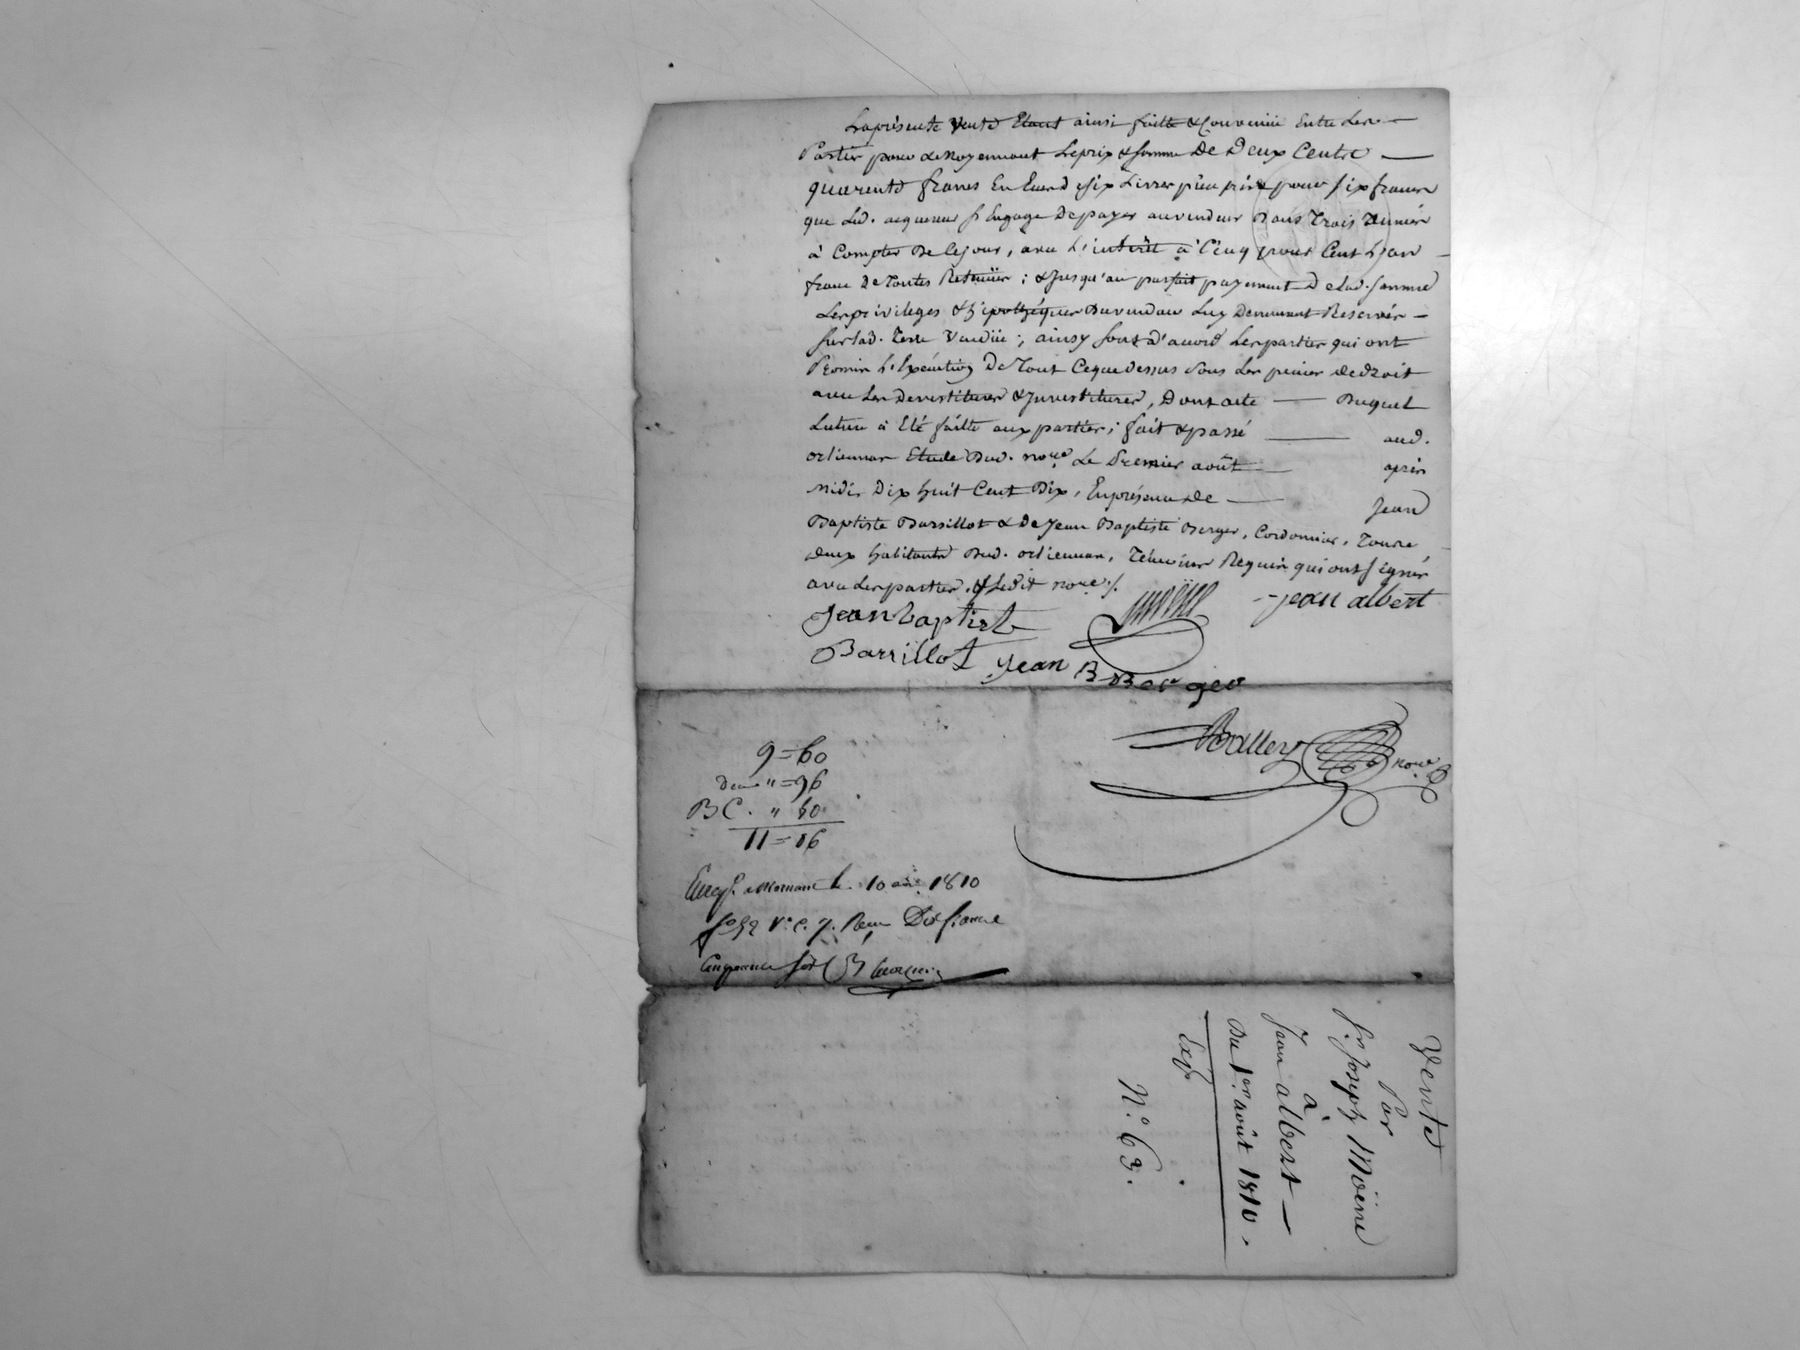 La présente vente Etant ainsi faitte & Convenüe Entre Les
Parties pour & Moyennant Le prix & somme De Deux Cents
quarente francs En Ecus de six Livres pieu prix pour six francs
que Led. acquereur s'Engage De payer au vendeur Dans Trois Années
à Compter De Ce jour, avec L'intérêt à Cinq pour Cent L'an
franc De Toutes Retenües ; & Jusqu'au parfait payement De Lad. somme
Les privileges & hipothéques Du vendeur Luy Demeurent Reservés
sur Lad. Terre Vendüe ; ainsy sont d'accord Les parties qui ont
Promis L'Exécution De Tout Ce que Dessus Sous Les peines de droit
avec Les Devestitures & Investitures, Dont acte Duquel
Lecture à Eté faitte aux parties ; fait & passé aud.
orliennas Etude Dud. nore. Le Premier août après
Midi Dix huit Cent Dix, En présence De Jean
Baptiste Barrillot & De Jean Baptiste Berger, Cordonnier, Tous
deux habitants Dud. orliennas, Témoins Requis qui ont signés
avec Les parties, & Ledit nore. /.
Jean baptiste
Barrillot
Moine
jean albert
Jean B Berger
nore
9=60
Deme " =96
BC. " 60
11=16
Enregt. a Mornant le 10 août 1810
fo 52 Vo C. 7. Reçu Dix francs
Cinquante six
Vente
Par
Sr. Joseph Moine
à
Jean albert
Du 1er août 1810.
Expn
N.o 63.